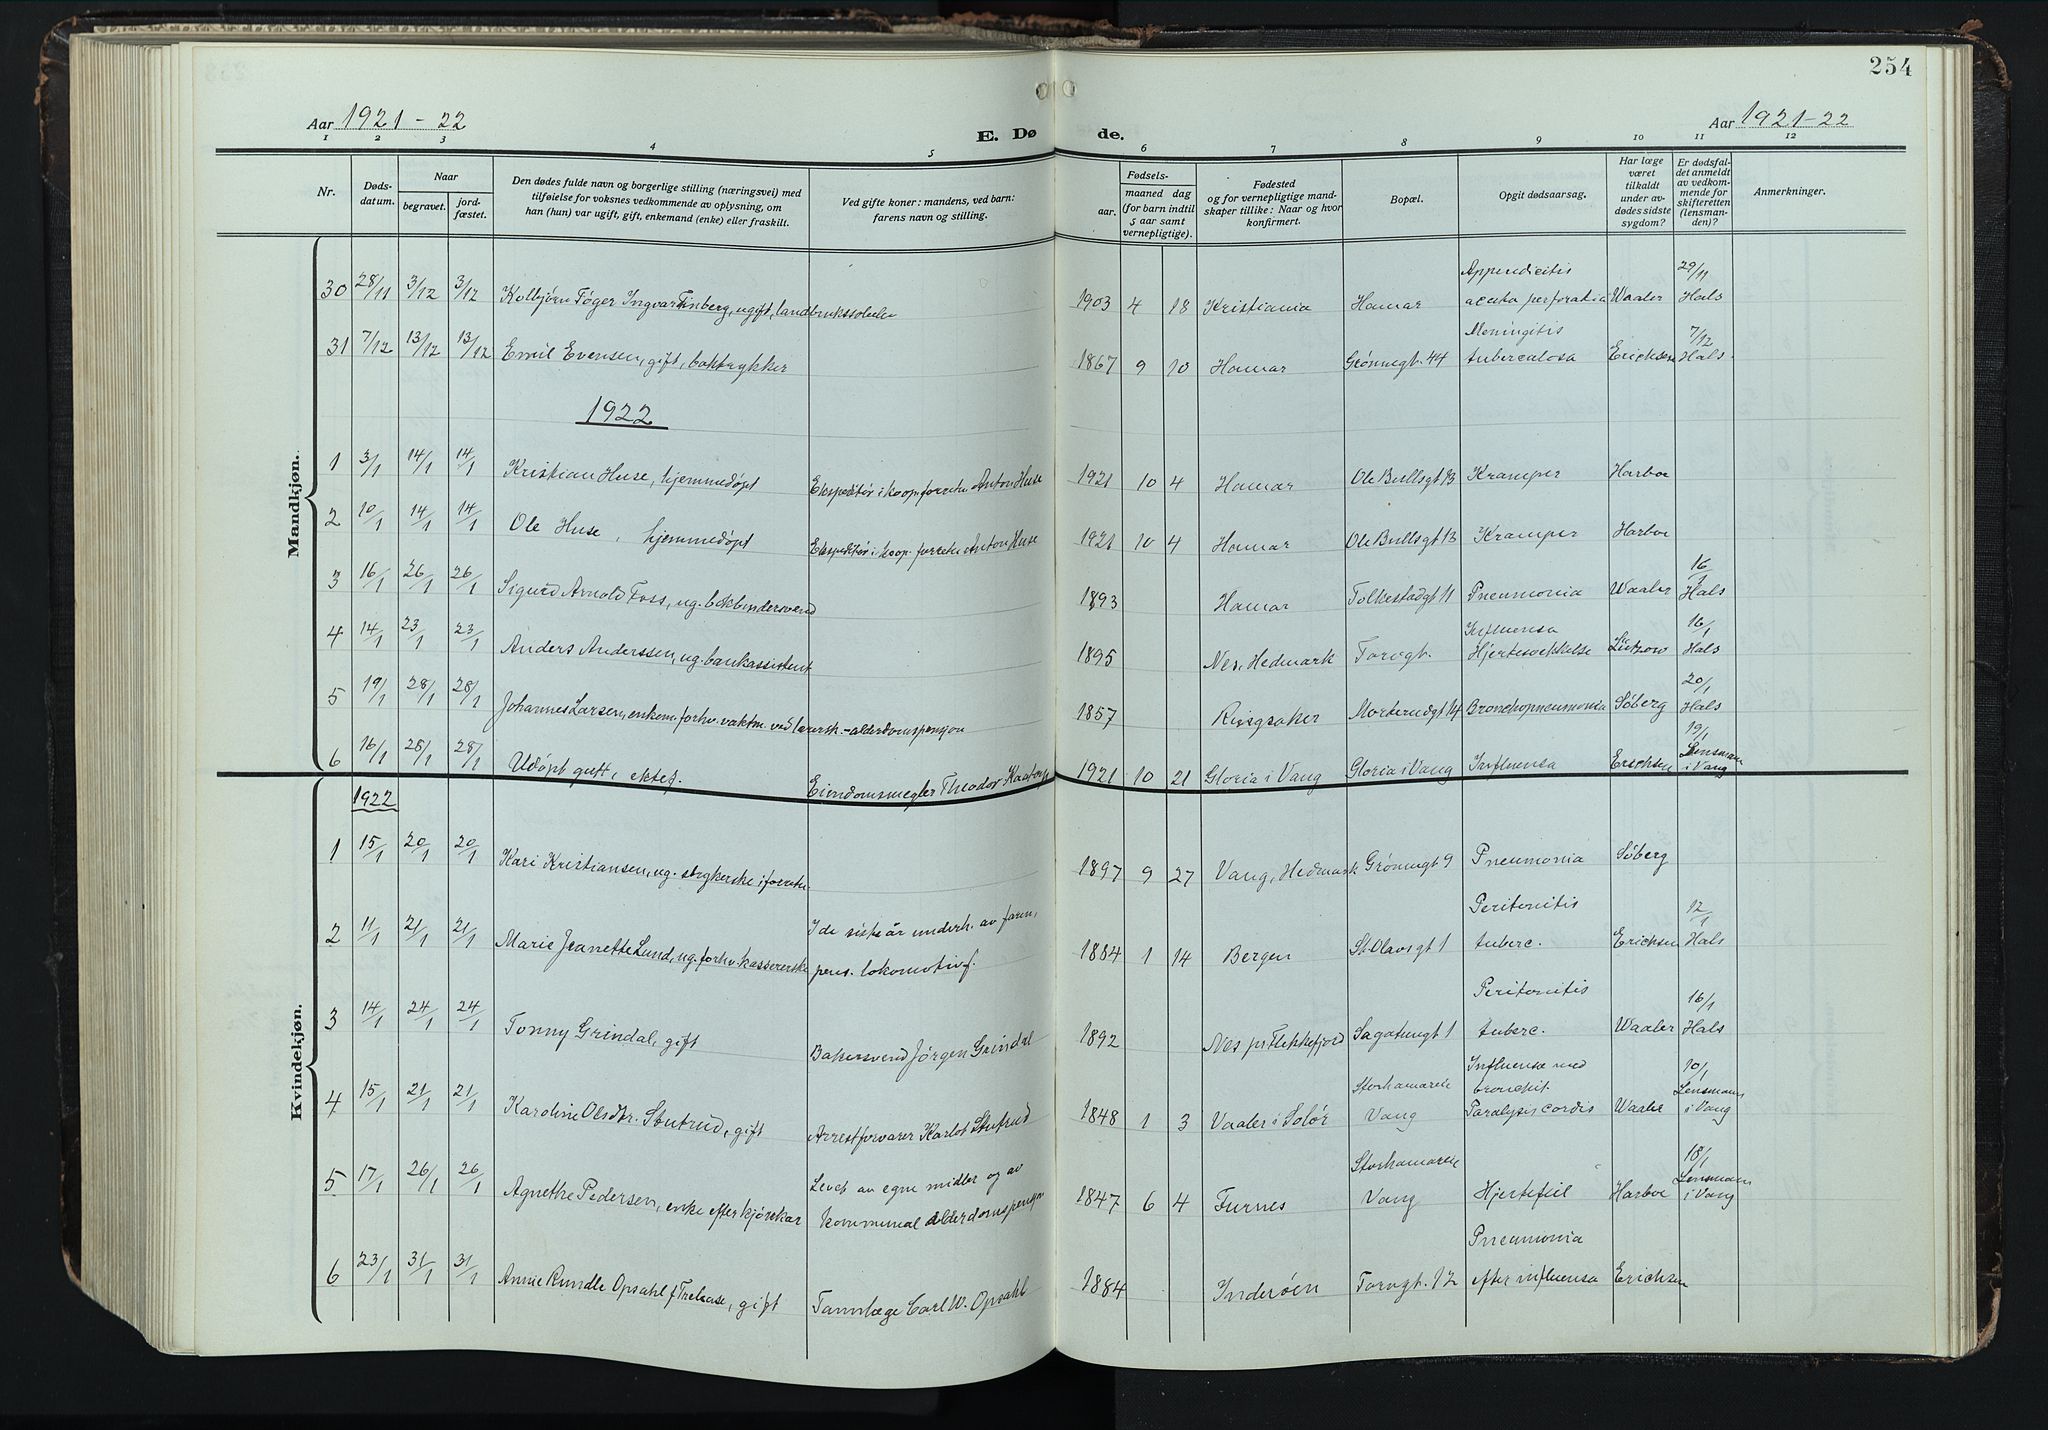 254
Aar 1921-22
E. Dø
de.
Aar 1921-22
1 2 3 4 5 6 7 8 9 10 11 12
Nr.
Døds-
datum.
Naar
begravet.
jord-
fæstet.
Den dødes fulde navn og borgerlige stilling (næringsvei) med
tilføielse for voksnes vedkommende av oplysning, om
han (hun) var ugift, gift, enkemand (enke) eller fraskilt.
Ved gifte koner: mandens, ved barn:
farens navn og stilling.
Fødsels-
aar. maaned dag
(for barn indtil
5 aar samt
vernepligtige).
Fødested
og for vernepligtige mand-
skaper tillike: Naar og hvor
konfirmert.
Bopæl.
Opgit dødsaarsag.
Har læge
været
tilkaldt
under av-
dødes sidste
sygdom?
Er dødsfal-
det anmeldt
av vedkom-
mende for
skifteretten
(lensman-
den)?
Anmerkninger.
Mandkjøn.
Appendicitis 29/11
30 28/11 3/12 3/12 Kolbjørn Føger Ingvar Finberg, ugift, landbrukselev 1903 4 18 Kristiania Hamar acuta perforatia Waaler Hals
Meningitis 7/12
31 7/12 13/12 13/12 Emil Evensen, gift, boktrykker 1867 9 10 Hamar Grønnegt. 44 tuberculosa Ericksen Hals
1922
1 3/1 14/1 14/1 Kristian Huse, hjemmedøpt Ekspeditør i koop. forretn. Anton Huse 1921 10 4 Hamar Ole Bullsgt 13 Kramper Harboe
2 10/1 14/1 14/1 Ole Huse, hjemmedøpt Ekspeditør i koop. forretn. Anton Huse 1921 10 4 Hamar Ole Bullsgt 13 Kramper Harboe
16/1
3 16/1 26/1 26/1 Sigurd Arnold Foss, ug. bokbindersvend 1893 Hamar Folkestadgt 11 Pneumonia Waaler Hals
Influensa 16/1
4 14/1 23/1 23/1 Anders Anderssen, ug. bankassistent 1895 Nes, Hedmark Torvgt. Hjertesvekkelse Lützow Hals
20/1
5 19/1 28/1 28/1 Johannes Larsen, enkem. forhv. vaktm. ved lærersk. - alderdomspensjon 1857 Ringsaker Morterudgt 14 Bronchopneumonia Søberg Hals
19/1
6 16/1 28/1 28/1 Udøpt gutt, ektef. Eiendomsmegler Theodor 1921 10 21 Gloria i Vang Gloria i Vang Influensa Erichsen Lensman
i Vang
Kvindekjøn.
1922
1 15/1 20/1 20/1 Kari Kristiansen, ug. strykerske i forretn. 1897 9 27 Vang, Hedmark Grønnegt 9 Pneumonia Søberg
I de siste år underh. av faren, Peritonitis 12/1
2 11/1 21/1 21/1 Marie Jeanette Lund, ug. forhv. kassererske pens. lokomotivf. 1884 1 14 Bergen St. Olavsgt 1 tuberc. Erichsen Hals
Peritonitis 16/1
3 14/1 24/1 24/1 Tonny Grindal, gift Bakersvend Jørgen Grindal 1892 Nes pr Flekkefjord Sagatungt 1 tuberc. Waaler Hals
Storhamareie Influensa med bronchit 10/1
4 15/1 21/1 21/1 Karoline Olsdtr. Stutrud, gift Arrestforvarer Karlot Stutrud 1848 1 3 Vaaler i Solør Vang Paralysis cordis Waaler Lensmann
i Vang
Levet av egne midler og av Storhamareie 18/1
5 17/1 26/1 26/1 Agnethe Pedersen, enke efter kjørekar kommunal alderdomspensjon 1847 6 4 Furnes Vang Hjertefeil Harboe Lensmann
i Vang
Pneumonia
6 23/1 31/1 31/1 Annie Rundle Opsahl f. Trelease, gift Tannlæge Carl W. Opsahl 1884 Inderøen Torvgt. 12 efter influensa Erichsen